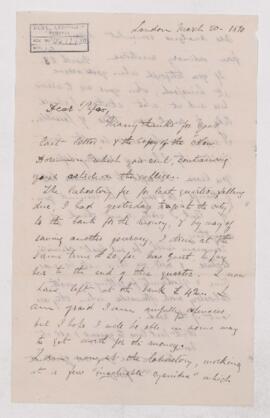 London March 20 - 1890
Dear Papa,
Many thanks for your
last letter & the copy of the
Dominion which you sent, containing
your article on the colleges.
The laboratory fee for last quarter falling
due, I had yesterday to go to the city
to the bank for the money, & by way of
saving another journey, I drew at the
same time £ so far as I want to pay
her to the end of this quarter. I now
have left at the bank £
am afraid I am awfully expensive
but I hope I will be able, in some way
to get worth for the money.
I am now, at the laboratory, working
at a few "insoluble cyanides" which